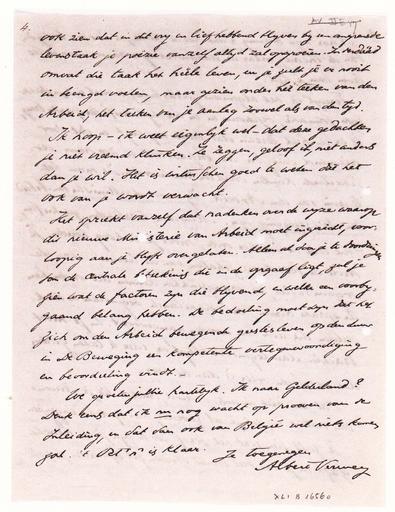 4.
ook zien dat in dit vry en liefhebbend blyven by uw ongerande
levenstaak je poëzie vanzelf altyd zal opgroeien. In
omvat die taak het heele leven, en je zult je er nooit
in beengd voelen, maar gezien onder het teeken van den
Arbeid, het teeken van je aanleg zoowel als van den tyd.
Ik hoop – ik weet eigenlyk wel – dat deze gedachten
je niet vreemd klinken. Ze zeggen, geloof ik, niet anders
dan je wil. Het is intusschen goed te weten dat het
ook van je wordt verwacht.
Het spreekt vanzelf dat nadenken over de wyze waarop
dit nieuwe Ministerie van Arbeid moet ingericht, voor-
loopig aan je blyft overgelaten. Alleen door je te doordringen
van de centrale beteekenis die in de opgaaf ligt, zul je
zien wat de factoren zyn die blyvend, en welke een vooorby-
gaand belang hebben. De bedoeling moet zyn dat het
zich om den Arbeid bewegende geestesleven op den duur
in De Beweging een kompetente vertegenwoordiging
en beoordeeling vindt. –
We groeten jullie hartelyk. Ik naar Gelderland?
Denk eens dat ik nu nog wacht op proeven van de
Inleiding en dat dan ook van België wel niets komen
zal. is klaar. Je toegenegen
Albert Verwey
XLI B 16560